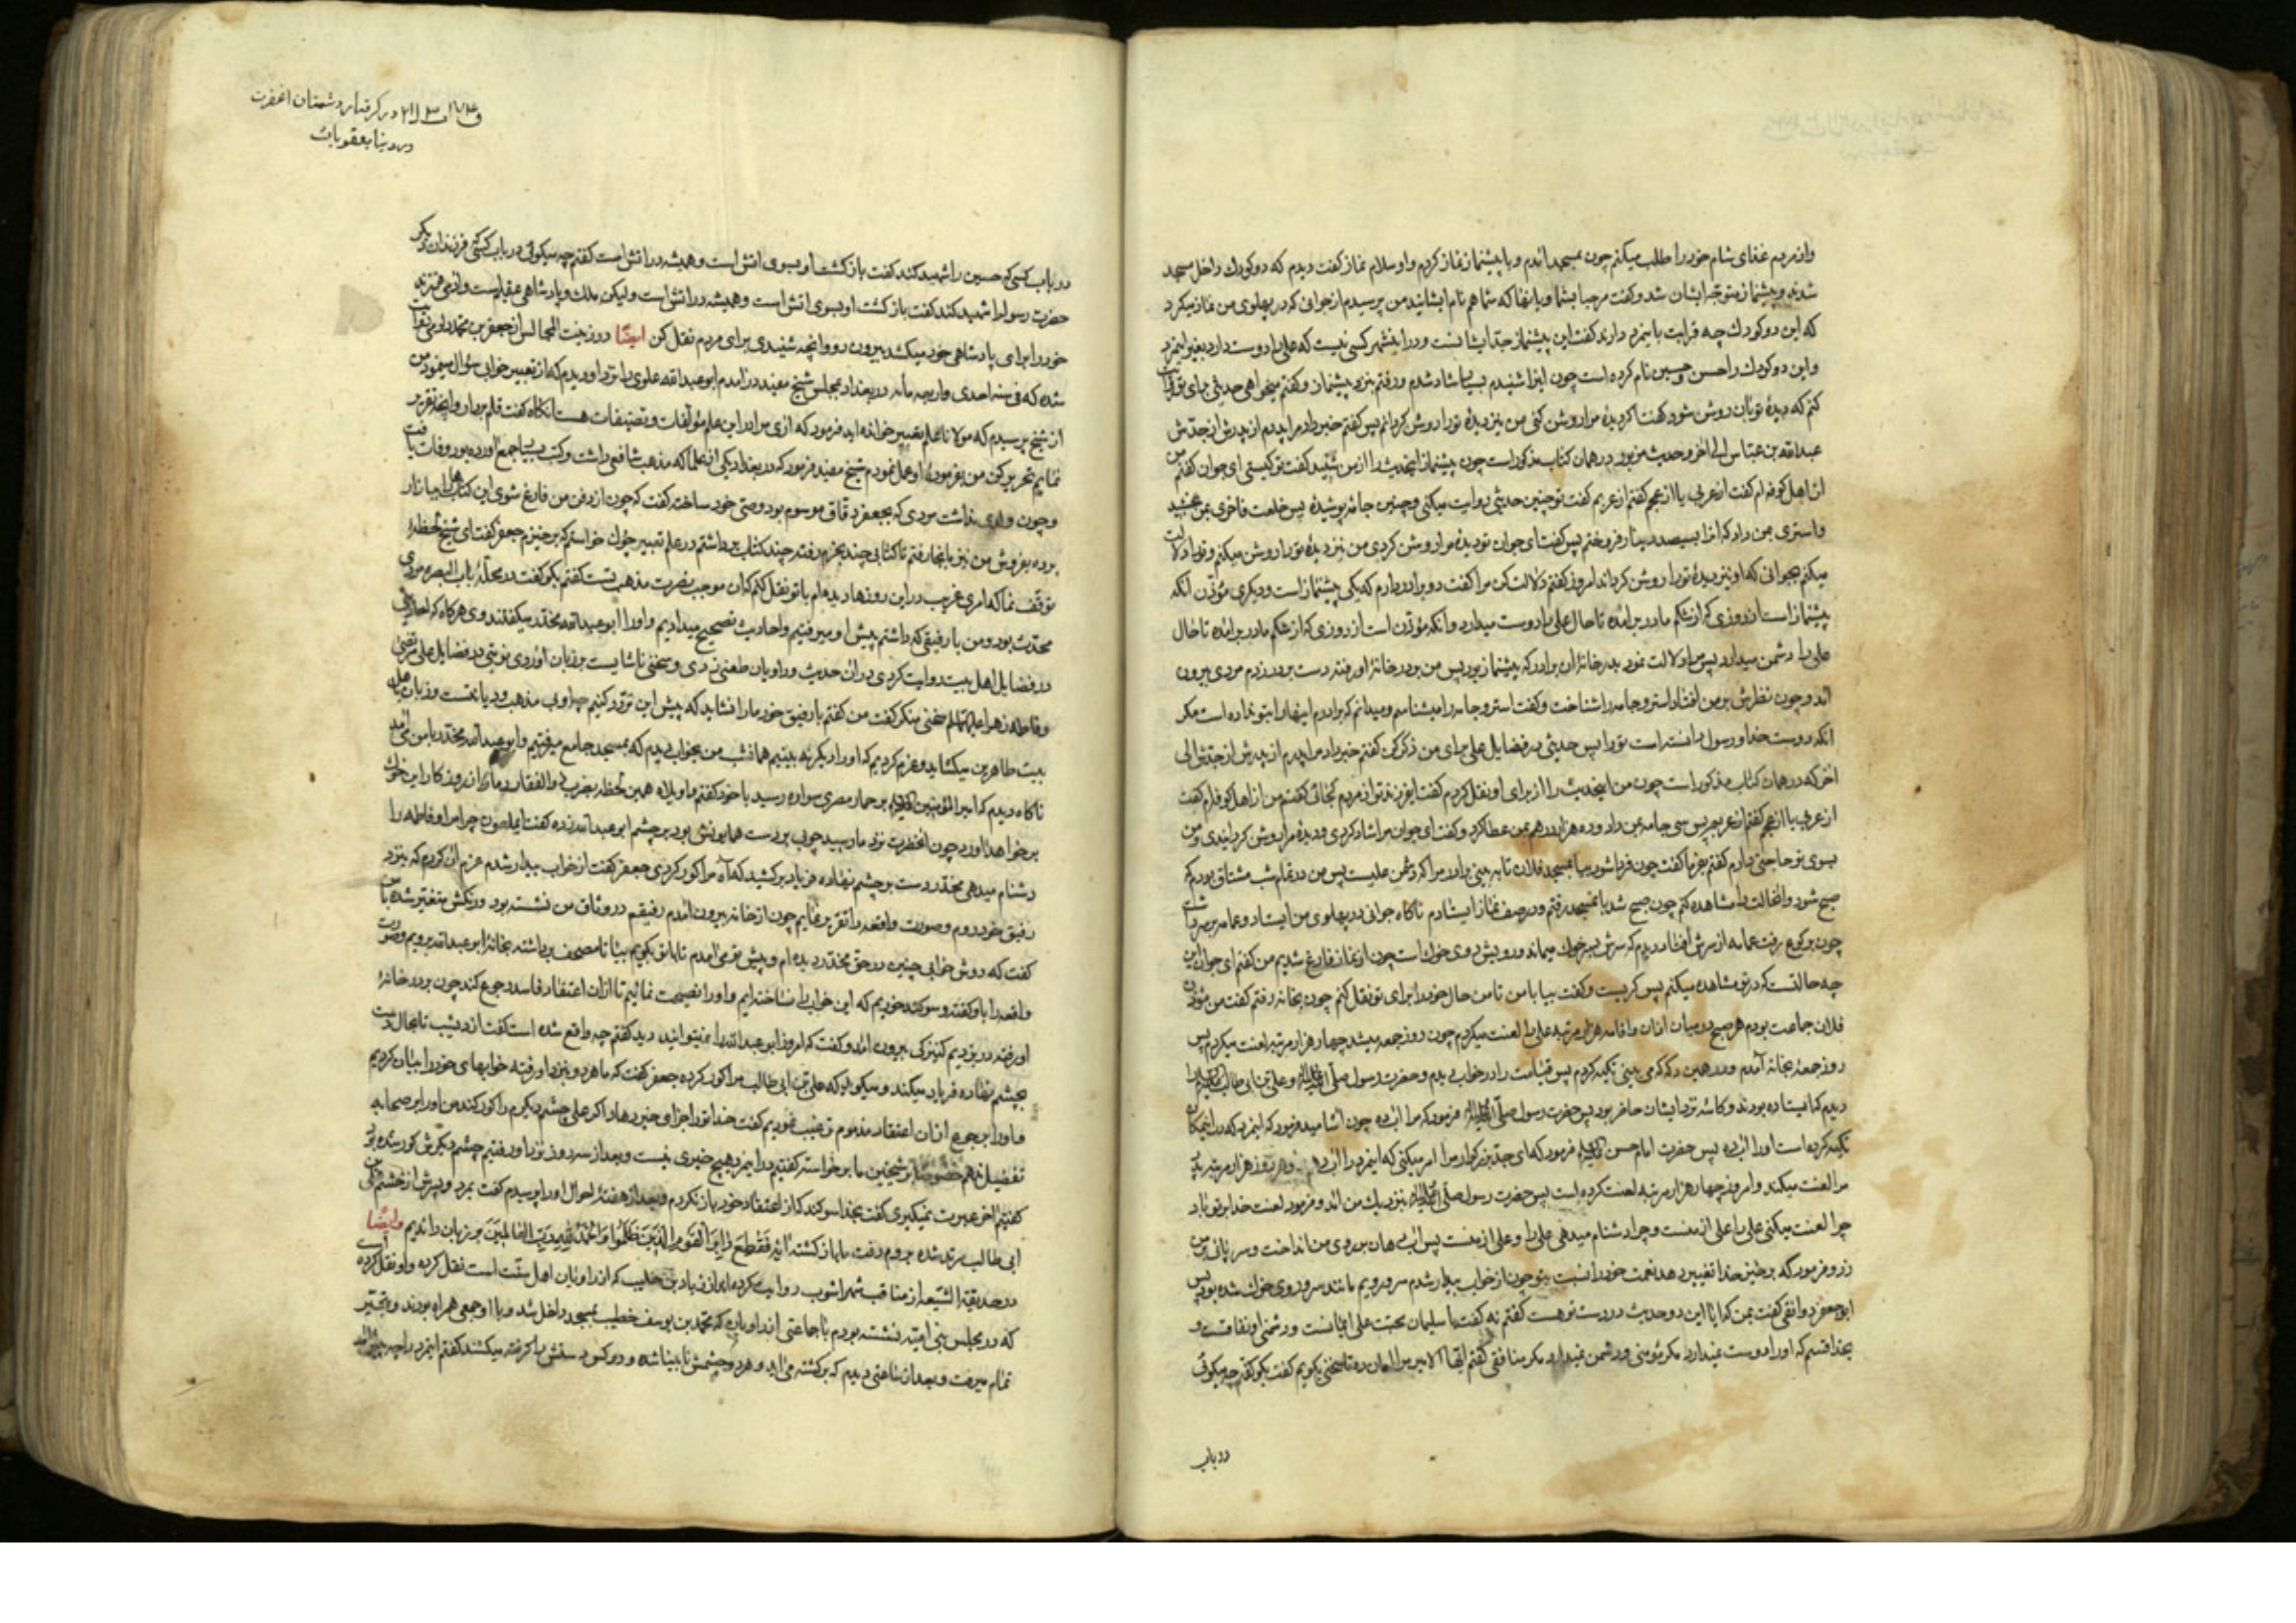 واز مردم غذای شام خود را طلب میکنم چون بمسجد آمدم و با پیشنماز نماز کردم و او سلام نماز گفت دیدم که دو کودک داخل مسجد
شدند و پیشنماز متوجه ایشان شد و گفت مرحبا بشما و بآنها که شما هم نام ایشانید من پرسیدم از جوانی که در پهلوی من نماز میکرد
که این دو کودک چه قرابت باینمرد دارند گفت این پیشنماز جد ایشانست و در اینشهر کسی نیست که علی را دوست دارد بغیر اینمرد
و این دو کودک را حسن و حسین نام کرده است چون اینرا شنیدم بسیار شاد شدم و رفتم بنزد پیشنماز و گفتم میخواهی حدیثی برای تو نقل
کنم که دیدهٔ تو بآن روشن شود گفت اگر دیدهٔ مرا روشن کنی من نیز دیدهٔ تو را روشن گردانم پس گفتم خبر داد مرا پدرم از پدرش از جدش
عبدالله بن عباس الی آخر و حدیث مزبور در همان کتاب مذکور است چون پیشنماز اینحدیث را از من شنید گفت تو کیستی ای جوان گفتم من
از اهل کوفه ام گفت از عربی یا از عجم گفتم از عربم گفت تو چنین حدیثی روایت میکنی و چنین جامه پوشیدهٔ پس خلعت فاخری بمن بخشید
و استری بمن داد که آنرا بسیصد دینار فروختم پس گفت ای جوان تو دیدهٔ مرا روشن کردی من نیز دیدهٔ تو را روشن میکنم و تو را دلالت
میکنم بجوانی که او نیز دیدهٔ تو را روشن گرداند امروز گفتم دلالت کن مرا گفت دو برادر دارم که یکی پیشنماز است و دیگری مؤذن آنکه
پیشنماز است از روزی که از شکم مادر برآمده تا حال علی را دوست میدارد و آنکه مؤذن است از روزی که از شکم مادر برآمده تا حال
علی را دشمن میدارد پس مرا دلالت نمود بدر خانهٔ آن برادر که پیشنماز بود پس من بدر خانهٔ او رفته دست بر در زدم مردی بیرون
آمد و چون نظرش بر من افتاد استر و جامه را شناخت و گفت استر و جامه را میشناسم و میدانم که برادرم اینها را بتو نداده است مگر
آنکه دوست خدا و رسول دانسته است تو را پس حدیثی در فضایل علی برای من ذکر کن گفتم خبر داد مرا پدرم از پدرش از جدش الی
آخر که در همان کتاب مذکور است چون من اینحدیث را از برای او نقل کردم گفت ایفرزند تو از مردم کجائی گفتم من از اهل کوفه ام گفت
از عربی یا از عجم گفتم از عربم پس سی جامه بمن داد و ده هزار درهم بمن عطا کرد و گفت ای جوان مرا شاد کردی و دیدهٔ مرا روشن گردانیدی و من
بسوی تو حاجتی دارم گفتم بفرما گفت چون فردا شود بیا بمسجد فلان تا به بینی برادر مرا که دشمن علیست پس من در تمام شب مشتاق بودم که
صبح شود و آنحالت را مشاهده کنم چون صبح شد بآنمسجد رفتم و در صف نماز ایستادم ناگاه جوانی در پهلوی من ایستاد و عمامه بر سر داشت
چون برکوع رفت عمامه از سرش افتاد دیدم که سرش بسر خوک میماند و رویش روی خوک است چون از نماز فارغ شدیم من گفتم ای جوان این
چه حالتست که در تو مشاهده میکنم پس گریست و گفت بیا با من تا من حال خود را برای تو نقل کنم چون بخانه رفتم گفت من مؤذن
فلان جماعت بودم هر صبح در میان اذان و اقامه هزار مرتبه علی را لعنت میکردم چون روز جمعه میشد چهار هزار مرتبه لعنت میکردم پس
روز جمعهٔ بخانه آمدم و در همین دکه که می بینی تکیه کردم پس قیامت را در خواب دیدم و حضرت رسول و علی بن ابی طالب را
دیدم که ایستاده بودند و کاسه نزد ایشان حاضر بود پس حضرت رسول فرمود که مرا آب ده چون آشامید فرمود که اینمرد که در اینمکان
تکیه کرده است او را آب ده پس حضرت امام حسن فرمود که ای جد بزرگوار مرا امر میکنی که اینمرد را آب دهم و هر روز هزار مرتبه پدر
مرا لعنت میکند و امروز چهار هزار مرتبه لعنت کرده است پس حضرت رسول بنزدیک من آمد و فرمود لعنت خدا بر تو باد
چرا لعنت میکنی علی را علی از منست و چرا دشنام میدهی علی را و علی از منست پس آب دهان بر روی من انداخت و سر پائی بر من
زد و فرمود که برخیز خدا تغییر دهد نعمت خود را نسبت بتو چون از خواب بیدار شدم سر و رویم مانند سر و روی خوک شده بود پس
ابوجعفر دوانقی گفت بمن که آیا این دو حدیث در دست تو هست گفتم نه گفت یا سلیمان محبت علی ایمانست و دشمنی او نفاقست و
بخدا قسم که او را دوست نمیدارد مگر مؤمنی و دشمن نمیدارد مگر منافقی گفتم ایها الامیر مرا امان ده تا سخنی بگویم گفت بگو گفتم چه میگوئی
در باب
در گرفتار دشمنان آنحضرت
در دنیا بعقوبات
در باب کسی که حسین را شهید کند گفت بازگشت او بسوی آتش است و همیشه در آتش است گفتم چه میگوئی در باب کسی که فرزندان دیگر
حضرت رسول را شهید کند گفت بازگشت او بسوی آتش است و همیشه در آتش است و لیکن ملک و پادشاهی عقیم است و آدمی فرزند
خود را برای پادشاهی خود میکشد بیرون رو و آنچه شنیدی برای مردم نقل کن ایضًا در زینت المجالس از جعفر بن محمد دوریستی نقل
شده که فی سنه احدی و اربعه مأنه در بغداد بمجلس شیخ مفید در آمدم ابو عبدالله علوی را نزد او دیدم که از تعبیر خواب سؤال مینمود من
از شیخ پرسیدم که مولانا علم تعبیر خوانده اید فرمود که آری مرا در این علم مؤلفات و تصنیفات هست آنگاه گفت قلم بردار و آنچه تقریر
نمایم تحریر کن من بفرمودهٔ او عمل نمودم شیخ مفید فرمود که در بغداد یکی از علما که مذهب شافعی داشت و کتب بسیار جمع آورده بود وفات یافت
و چون ولدی نداشت مردی که بجعفر دقاق موسوم بود وصی خود ساخته گفت که چون از دفن من فارغ شوی این کتابها را ببازار
برده بفروش من نیز بآنجا رفتم تا کتابی چند بخرم رفته چند کتاب برداشتم در علم تعبیر چون خواستم که برخیزم جعفر گفت ای شیخ لحظهٔ
توقف نما که امری غریب در این روزها دیده ام با تو نقل کنم که آن موجب نصرت مذهب تست گفتم بگو گفت در محلهٔ باب البصره مردی
محدث بود و من با رفیقی که داشتم پیش او میرفتیم و احادیث تصحیح میدادیم و او را ابو عبدالله محدث میگفتند وی هرگاه که احادیثی
در فضایل اهل بیت روایت کردی در آن حدیث و راویان طعنی زدی و سخنی ناشایست بر زبان آوردی نوبتی در فضایل علی مرتضی
و فاطمه زهرا سخنی منکر گفت من گفتم با رفیق خود ما را نشاید که پیش این تردد کنیم چه او بی مذهب و دیانتست و زبان باهل
بیت طاهرین میگشاید و عزم کردیم که او را دیگر نه بینیم همانشب من بخواب دیدم که بمسجد جامع میرفتیم و ابو عبدالله محدث با من می آمد
ناگاه دیدم که امیر المؤمنین بر حمار مصری سواره رسید با خود گفتم واویلاه همین لحظه بضرب ذوالفقار دمار از روزگار این خوک
برخواهد آورد چون آنحضرت نزد ما رسید چوبی بر دست همایونش بود بر چشم ابو عبدالله زده گفت ایملعون چرا مرا و فاطمه را
دشنام میدهی محدث دست بر چشم نهاده فریاد برکشید که آه مرا کور کردی جعفر گفت از خواب بیدار شدم عزم آن کردم که بنزد
رفیق خود روم و صورت واقعه را تقریر نمایم چون از خانه بیرون آمدم رفیقم در وثاق من نشسته بود و رنگش متغیر شده با من
گفت که دوش خوابی چنین در حق محدث دیده ام و پیش تو می آمدم تا با تو بگویم بیا تا مصحف برداشته بخانهٔ ابو عبدالله برویم و صورت
واقعه را باو گفته و سوگند خوریم که این خواب را نساخته ایم و او را نصیحت نمائیم تا از آن اعتقاد فاسد رجوع کند چون بدر خانهٔ
او رفته در بزدیم کنیزکی بیرون آمد و گفت که امروز ابو عبدالله را نمیتوانید دید گفتم چه واقع شده است گفت از دیشب تا بحال دست
بچشم نهاده فریاد میکند و میگوید که علی بن ابی طالب مرا کور کرده جعفر گفت که ما هر دو بنزد او رفته خوابهای خود را بیان کردیم
و او را برجوع از آن اعتقاد مذموم ترغیب نمودیم گفت خدا تو را جزای خیر دهاد اگر علی چشم دیگرم را کور کند من او را بر صحابه
تفضیل ندهم خصوصا بر شیخین ما برخواسته گفتیم در اینمرد هیچ خیری نیست و بعد از سه روز نزد او رفتیم چشم دیگرش کور شده بود
گفتیم آخر عبرت نمیگیری گفت بخدا سوگند که از اعتقاد خود باز نگردم و بعد از هفتهٔ احوال او را پرسیدم گفت بمرد و پسرش از خشم علی بن
ابی طالب مرتد شده بروم رفت ما باز گشته آیهٔ فَقُطِعَ دابِرُ القَومِ الَّذینَ ظَلَمُوا وَالحَمدُ لِلّهِ رَبِّ العالَمینَ بر زبان راندیم وایضًا
در حدیقة الشیعه از مناقب شهر آشوب روایت کرده که او از زیاد بن کلیب که از راویان اهل سنت است نقل کرده و او نقل کرده
که در مجلس بنی امیه نشسته بودم با جماعتی که محمد بن یوسف خطیب بمسجد داخل شد و با او جمعی همراه بودند و بتختر
تمام میرفت و بعد از ساعتی دیدم که برگشته می آید و هر دو چشمش نابینا شده و دو کس دستش را گرفته میکشند گفتم اینمرد را چه